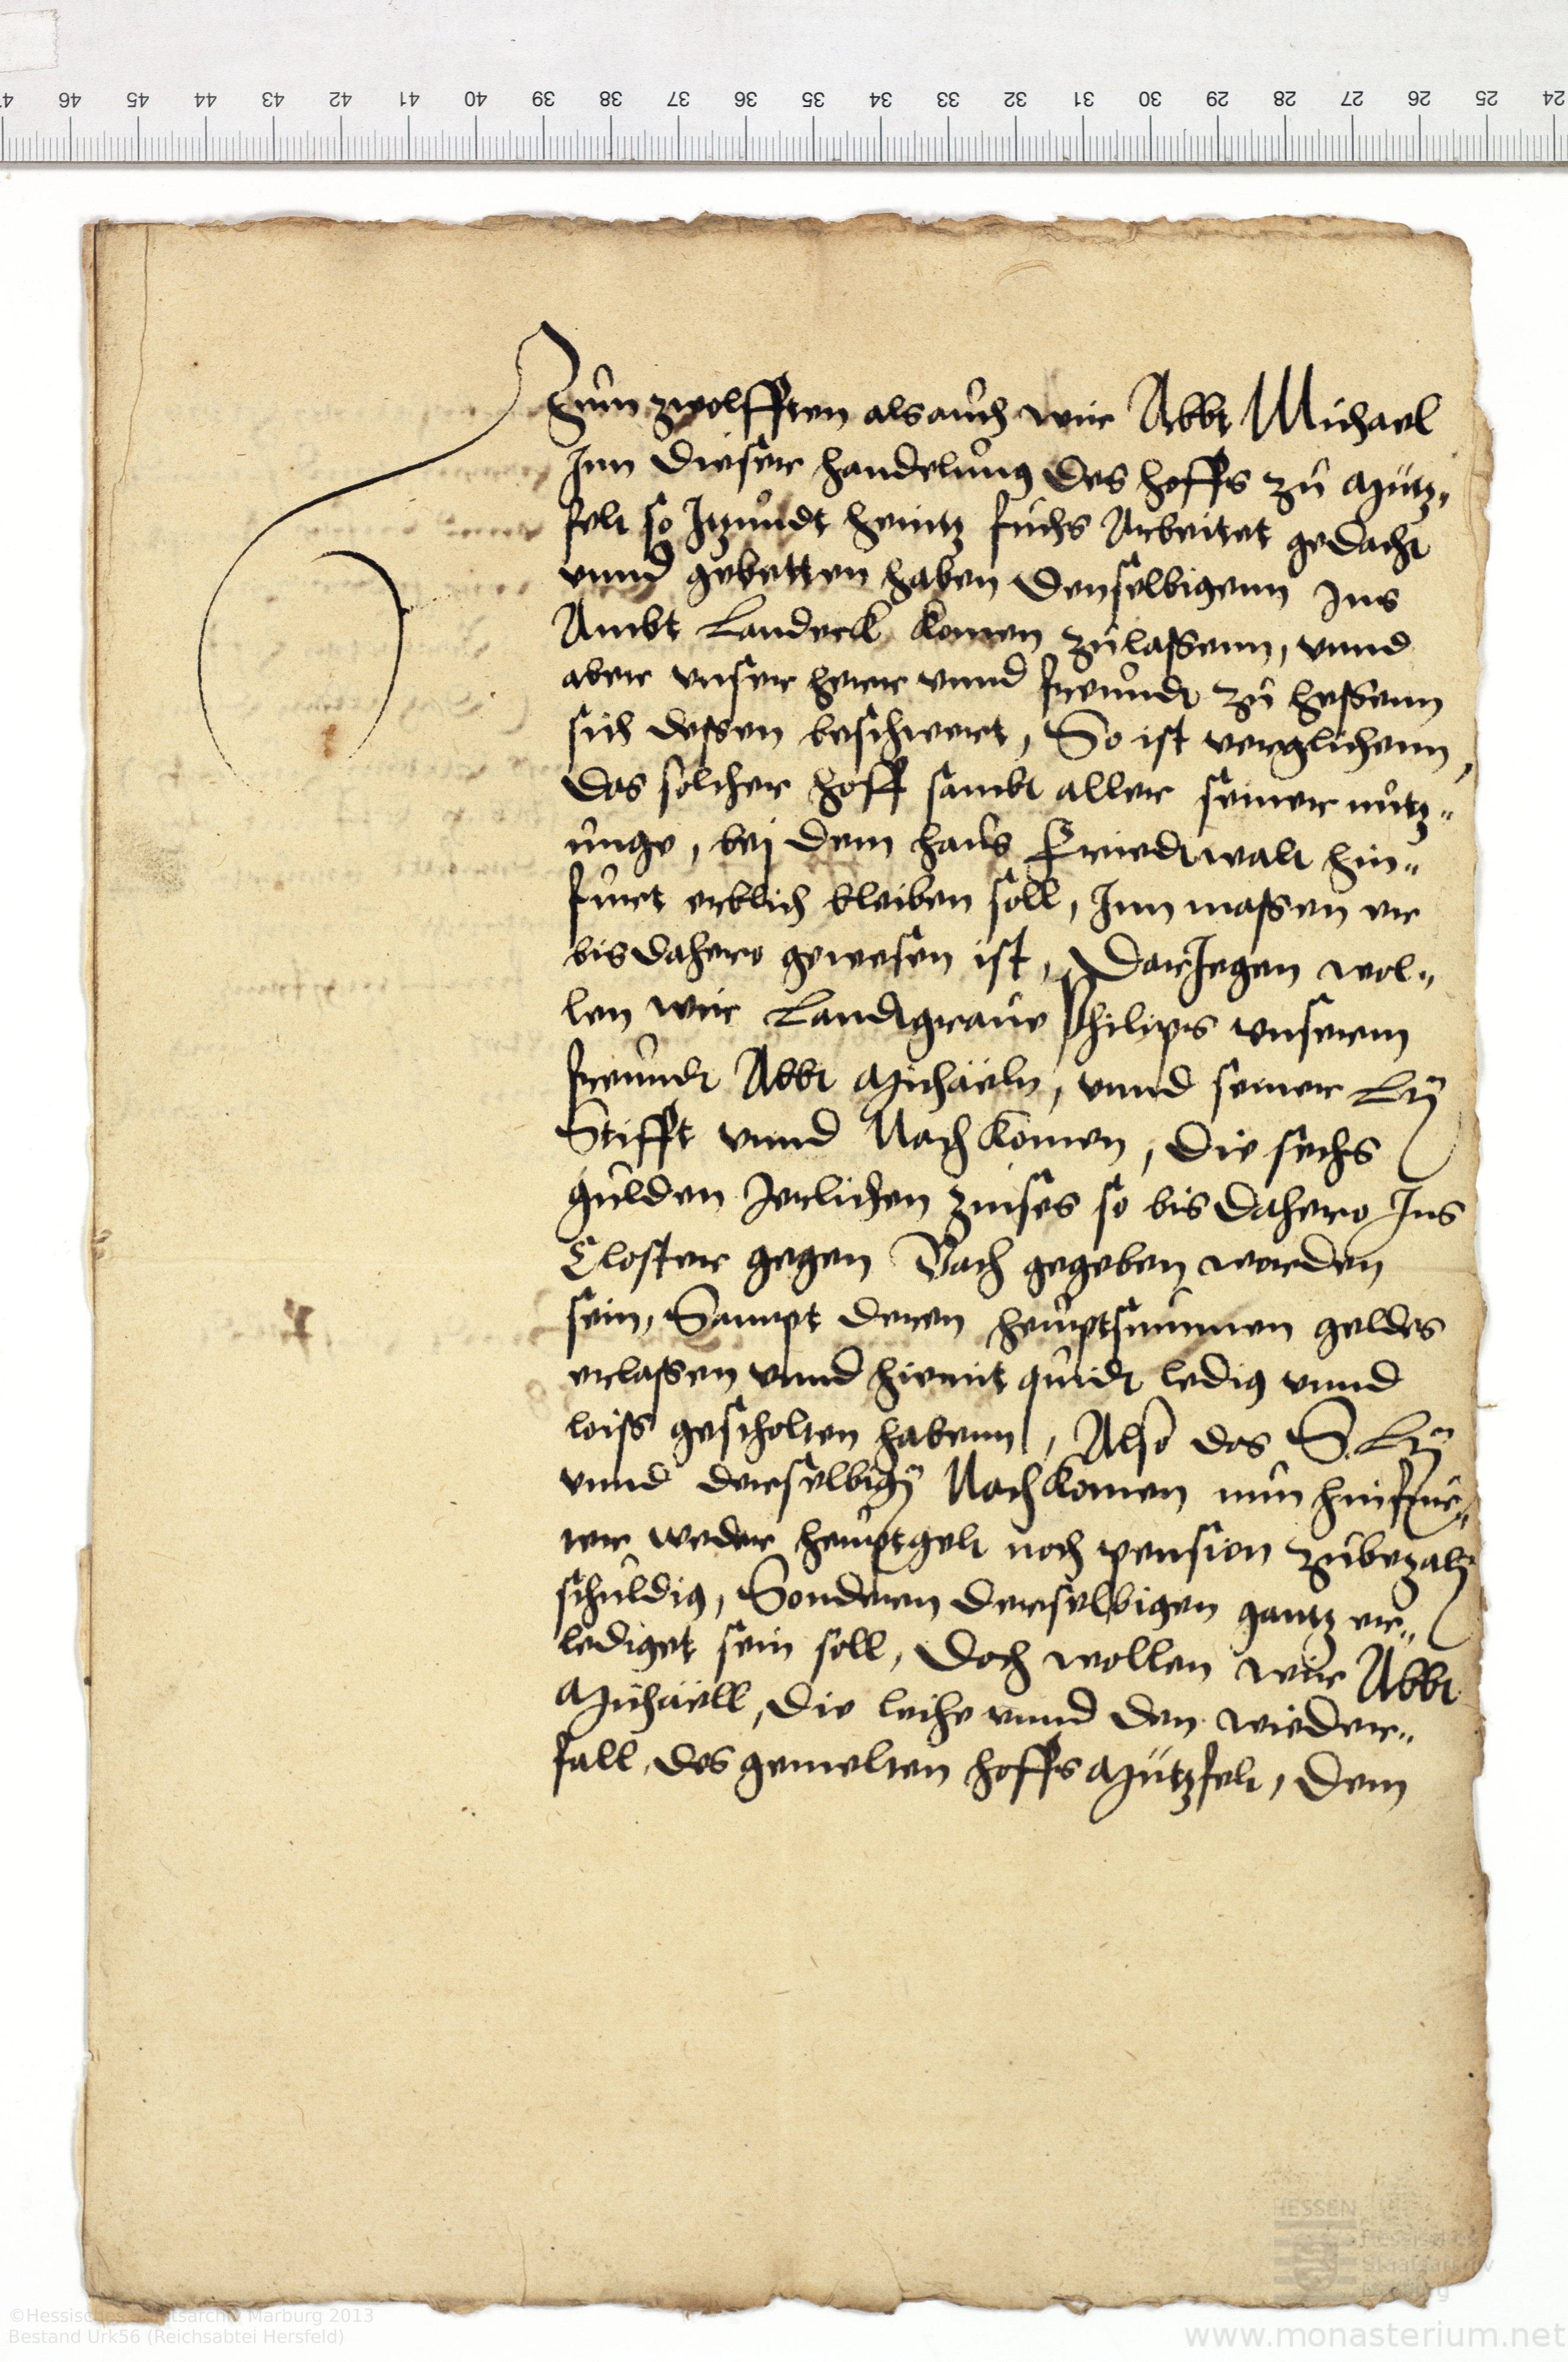 47 46 45 44 43 42 41 40 39 38 37 36 35 34 33 32 31 30 29 28 27 26 25 24
Zum zwolfften als auch wir Abbt Michael
Inn dieser handelung des hoffs zu Mütz„
felt so Itzundt heintz fuchs Arbeitet gedacht
vnnd gebetten haben denselbigenn Ins
Ambt Landeck komen zulassenn, vnnd
aber vnser herr vnnd freundt zu hessenn
sich dessen beschwert, So ist verglichenn,
das solcher hoff sambt aller seiner nutz„
unge, bej dem haus Friedewalt hin„
furt erblich bleiben soll, Inn massen er
bis dahero gewesen ist, Dar Jegen wol„
len wir Landtgraue Philips vnserem
freundt Abbt Michäeln, vnnd seiner L
Stifft vnnd Nachkomen, die sechs
gulden Jerlichen zinses so bis dahero Ins
Closter gegen Vach gegeben worden
sein, Sampt deren heuptsummen geldes
erlassen vnnd hiemit quidt ledig vnnd
loiss gescholten habenn, Also das S. L
vnnd derselbigen Nachkomen nun hinfur„
ter weder heuptgelt noch pension zubezaln
schuldig, Sonderen derselbigen gantz er„
lediget sein soll, Doch wollen wir Abbt
Michäell, die leihe vnnd den wieder„
fall des gemelten hoffs Mützfelt, dem
HESSEN
Hessisches
Staatsarchiv
Marburg
©Hessisches Staatsarchiv Marburg 2013
Bestand Urk56 (Reichsabtei Hersfeld)
www.monasterium.net